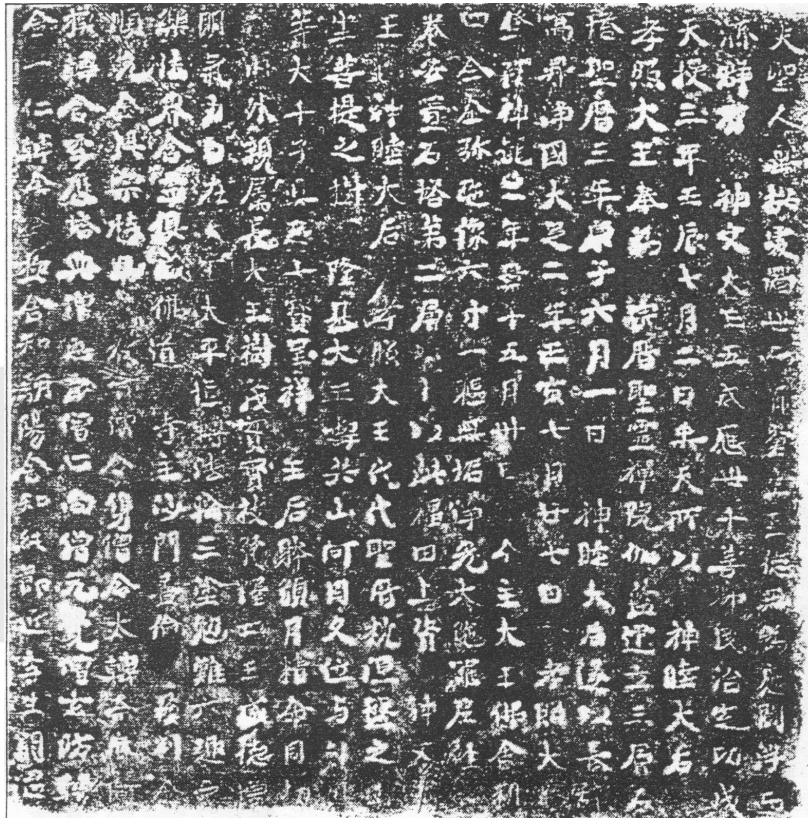 夫聖人垂拱處濁世而育蒼生至德無爲應閻浮而
濟群有 神文大王五戒應世十善御民治定功成
天授三年壬辰七月二日乘天所以 神睦大后
孝照大王奉爲 宗廟聖靈禪院伽藍建立三層石
塔聖曆三年庚子六月一日 神睦大后遂以長辭
高昇淨國大足二年壬寅七月廿七日 孝照大王
登霞神龍二年景午五月卅日 今主大王佛舍利
四全金弥陀像六寸一軀無垢淨光大陀羅尼經一
卷安置石塔第二層以卜以此福田上資 神文大
王 神睦大后 孝照大王代代聖廟枕涅盤之山
坐菩提之樹 隆基大王壽共山河同久位与軋川
等大千子具足七寶呈祥 王后體類月精命同劫
數內外親屬長大玉樹茂實寶枝梵釋四王威德增
明氣力自在天下太平恒轉法輪三塗勉難六趣受
樂法界含靈俱成佛道 寺主沙門善倫 蘇判金
順元金興宗特奉 敎旨僧令儁僧令太韓奈麻阿
摸韓舍季歷塔典僧惠岸僧心尙僧元覺僧玄昉韓
舍一仁韓舍全極舍知朝陽舍知純節匠季生閼溫